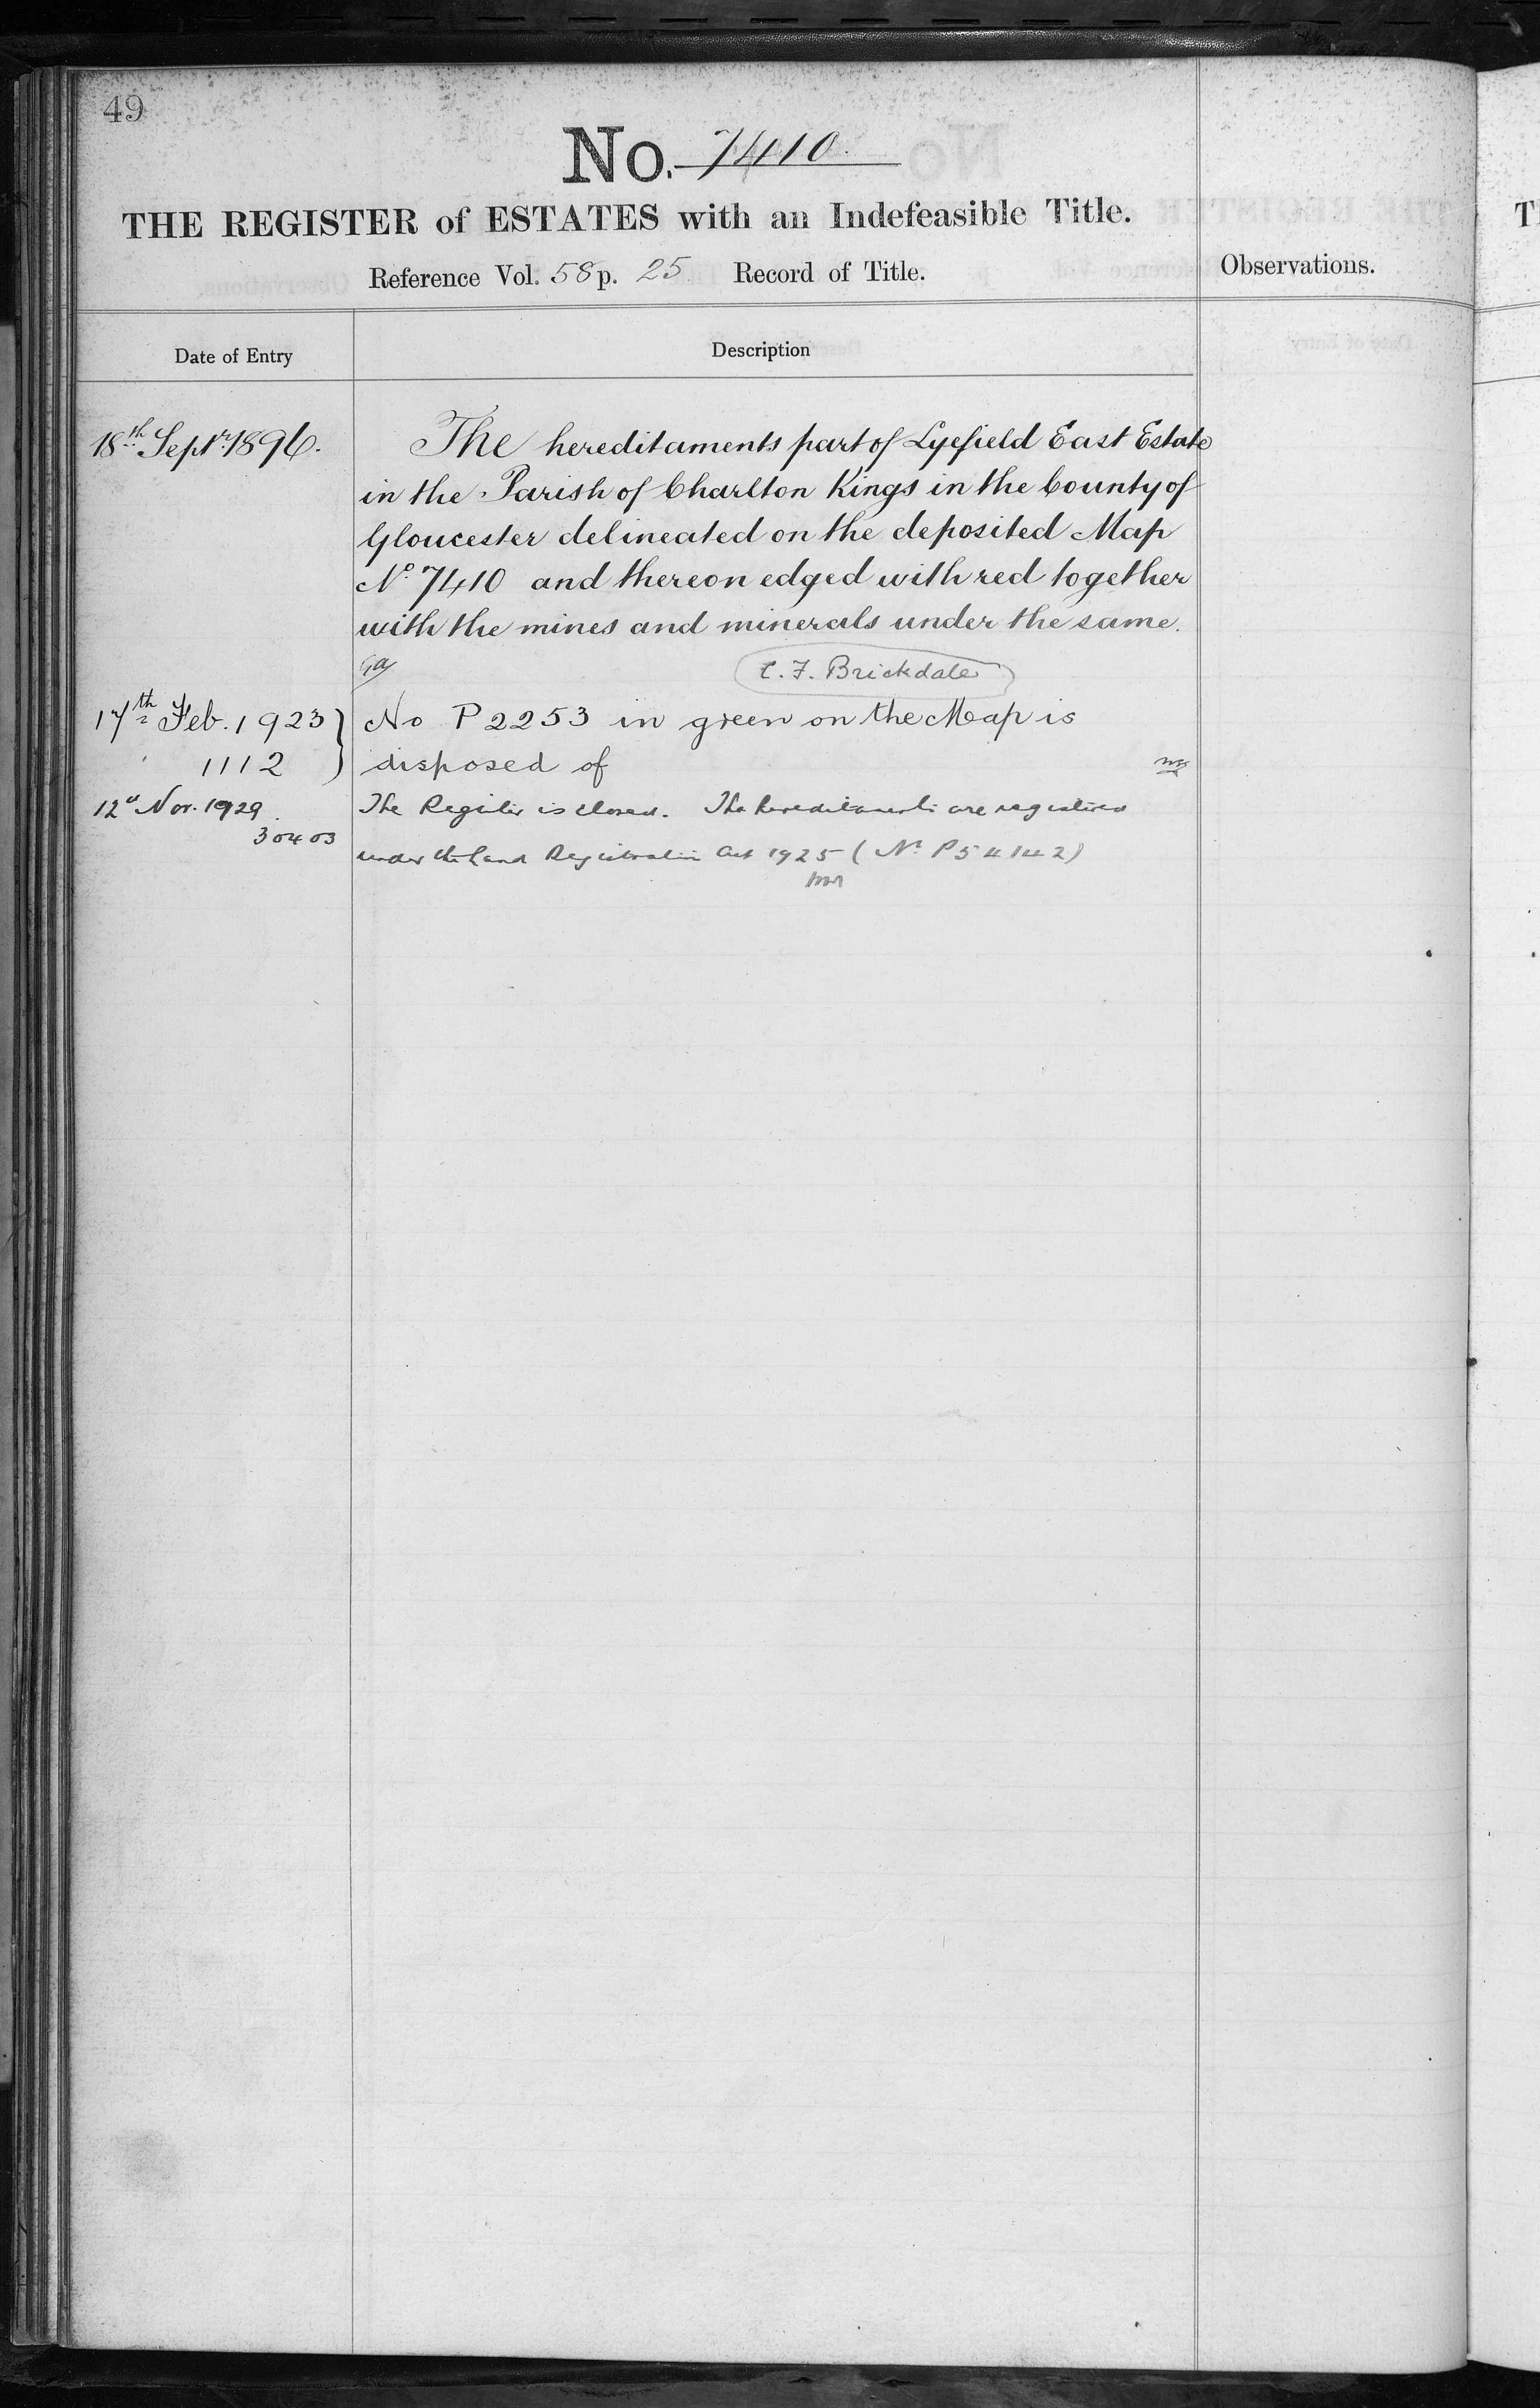 49
No. 7410.
THE REGISTER of ESTATES with an Indefeasible Title.
Reference Vol. 58 p. 25 Record of Title.
Observations.
Date of Entry
Description
18th Septr. 1896.
The hereditaments part of Lyefield East Estate
in the Parish of Charlton Kings in the County of
Gloucester delineated on the deposited Map
No. 7410 and thereon edged with red together
with the mines and minerals under the same.
C. F. Brickdale
17th Feb. 1923
1112
No P 2253 in green on the Map is
disposed of
12th Nov. 1929.
30403
The Register is closed. The hereditaments are registered
under the Land Registration Act 1925 (No. P54142)